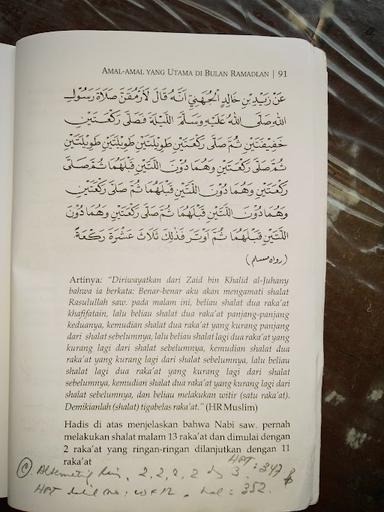 AMAL-AMAL YANG UTAMA DI BULAN RAMADLAN | 91
عَنْ زَيْدِ بْنِ خَالِدٍ الْجُهَنِيِّ أَنَّهُ قَالَ لَأَرْمُقَنَّ صَلَاةَ رَسُوْلِ
اللهِ صَلَّى اللهُ عَلَيْهِ وَسَلَّمَ اللَّيْلَةَ فَصَلَّى رَكْعَتَيْنِ
خَفِيْفَتَيْنِ ثُمَّ صَلَّى رَكْعَتَيْنِ طَوِيْلَتَيْنِ طَوِيْلَتَيْنِ طَوِيْلَتَيْنِ
ثُمَّ صَلَّى رَكْعَتَيْنِ وَهُمَا دُوْنَ اللَّتَيْنِ قَبْلَهُمَا ثُمَّ صَلَّى
رَكْعَتَيْنِ وَهُمَا دُوْنَ اللَّتَيْنِ قَبْلَهُمَا ثُمَّ صَلَّى رَكْعَتَيْنِ
وَهُمَا دُوْنَ اللَّتَيْنِ قَبْلَهُمَا ثُمَّ صَلَّى رَكْعَتَيْنِ وَهُمَا دُوْنَ
اللَّتَيْنِ قَبْلَهُمَا ثُمَّ أَوْتَرَ فَذٰلِكَ ثَلَاثَ عَشْرَةَ رَكْعَةً.
(رواه مسلم)
Artinya: "Diriwayatkan dari Zaid bin Khalid al-Juhany
bahwa ia berkata: Benar-benar aku akan mengamati shalat
Rasulullah saw. pada malam ini, beliau shalat dua raka'at
khafifatain, lalu beliau shalat dua raka'at panjang-panjang
keduanya, kemudian shalat dua raka'at yang kurang panjang
dari shalat sebelumnya, lalu beliau shalat lagi dua raka'at yang
kurang lagi dari shalat sebelumnya, kemudian shalat dua
raka'at yang kurang lagi dari shalat sebelumnya, lalu beliau
shalat lagi dua raka'at yang kurang lagi dari shalat
sebelumnya, kemudian shalat dua raka'at yang kurang lagi dari
shalat sebelumnya, dan beliau melakukan witir (satu raka'at).
Demikianlah (shalat) tigabelas raka'at." (HR Muslim)
Hadis di atas menjelaskan bahwa Nabi saw. pernah
melakukan shalat malam 13 raka'at dan dimulai dengan
2 raka'at yang ringan-ringan dilanjutkan dengan 11
raka'at
HPT
2, 2, 2, 2 3 : 347
HPT hal : 352.